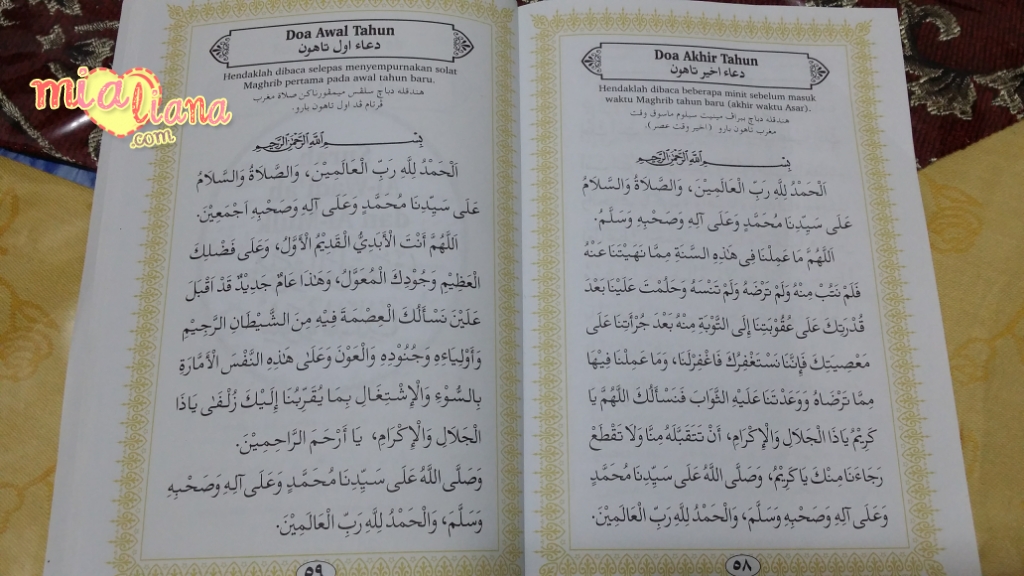 Doa Akhir Tahun
دعاء اخير تاهون
Hendaklah dibaca beberapa minit sebelum masuk
waktu Maghrib tahun baru (akhir waktu Asar).
هندقله دباچ ببراف مينيت سبلوم ماسوق وقت
مغرب تاهون بارو (اخير وقت عصر)
بِسْمِ اللَّهِ الرَّحْمَنِ الرَّحِيمِ
اَلْحَمْدُ لِلَّهِ رَبِّ الْعَالَمِيْنَ، وَالصَّلَاةُ وَالسَّلَامُ
عَلَى سَيِّدِنَا مُحَمَّدٍ وَعَلَى آلِهِ وَصَحْبِهِ وَسَلَّمُ.
اَللَّهُمَّ مَا عَمِلْنَا فِى هَذِهِ السَّنَةِ مِمَّا نَهَيْتَنَا عَنْهُ
فَلَمْ نَتُبْ مِنْهُ وَلَمْ تَرْضَهُ وَلَمْ تَنْسَهُ وَحَلَمْتَ عَلَيْنَا بَعْدَ
قُدْرَتِكَ عَلَى عُقُوْبَتِنَا إِلَى التَّوْبَةِ مِنْهُ بَعْدَ جُرْأَتِنَا عَلَى
مَعْصِيَتِكَ فَإِنَّنَا نَسْتَغْفِرُكَ فَاغْفِرْلَنَا، وَمَا عَمِلْنَا فِيهَا
مِمَّا تَرْضَاهُ وَوَعَدْتَنَا عَلَيْهِ الثَّوَابَ فَنَسْأَلُكَ اللَّهُمَّ يَا
كَرِيْمُ يَاذَا الْجَلَالِ وَالْإِكْرَامِ، أَنْ تَتَقَبَّلَهُ مِنَّا وَلَا تَقْطَعْ
رَجَاءَنَا مِنْكَ يَا كَرِيْمُ، وَصَلَّى اللَّهُ عَلَى سَيِّدِنَا مُحَمَّدٍ
وَعَلَى آلِهِ وَصَحْبِهِ وَسَلَّمَ، وَالْحَمْدُ لِلَّهِ رَبِّ الْعَالَمِيْنَ.
٥٨
Doa Awal Tahun
دعاء اول تاهون
Hendaklah dibaca selepas menyempurnakan solat
Maghrib pertama pada awal tahun baru.
هندقله دباچ سلڤس ميمڤورناكن صلاة مغرب
ڤرتام ڤد اول تاهون بارو
بِسْمِ اللَّهِ الرَّحْمَنِ الرَّحِيمِ
اَلْحَمْدُ لِلَّهِ رَبِّ الْعَالَمِيْنَ، وَالصَّلَاةُ وَالسَّلَامُ
عَلَى سَيِّدِنَا مُحَمَّدٍ وَعَلَى آلِهِ وَصَحْبِهِ اَجْمَعِيْنَ.
اَللَّهُمَّ أَنْتَ الْأَبَدِيُّ الْقَدِيْمُ الْأَوَّلُ، وَعَلَى فَضْلِكَ
الْعَظِيْمِ وَجُوْدِكَ الْمُعَوَّلُ، وَهَذَا عَامٌ جَدِيْدٌ قَدْ أَقْبَلَ
عَلَيْنَ نَسْأَلُكَ الْعِصْمَةَ فِيْهِ مِنَ الشَّيْطَانِ الرَّجِيْمِ
وَأَوْلِيَاءِهِ وَجُنُوْدِهِ وَالْعَوْنَ وَعَلَى هَذِهِ النَّفْسِ الْأَمَّارَةِ
بِالسُّوْءِ وَالْإِشْتِغَالِ بِمَا يُقَرِّبُنَا إِلَيْكَ زُلْفَى يَاذَا
الْجَلَالِ وَالْإِكْرَامِ، يَا أَرْحَمَ الرَّاحِمِيْنَ.
وَصَلَّى اللَّهُ عَلَى سَيِّدِنَا مُحَمَّدٍ وَعَلَى آلِهِ وَصَحْبِهِ
وَسَلَّمَ، وَالْحَمْدُ لِلَّهِ رَبِّ الْعَالَمِيْنَ.
٥٩
mia liana
.com